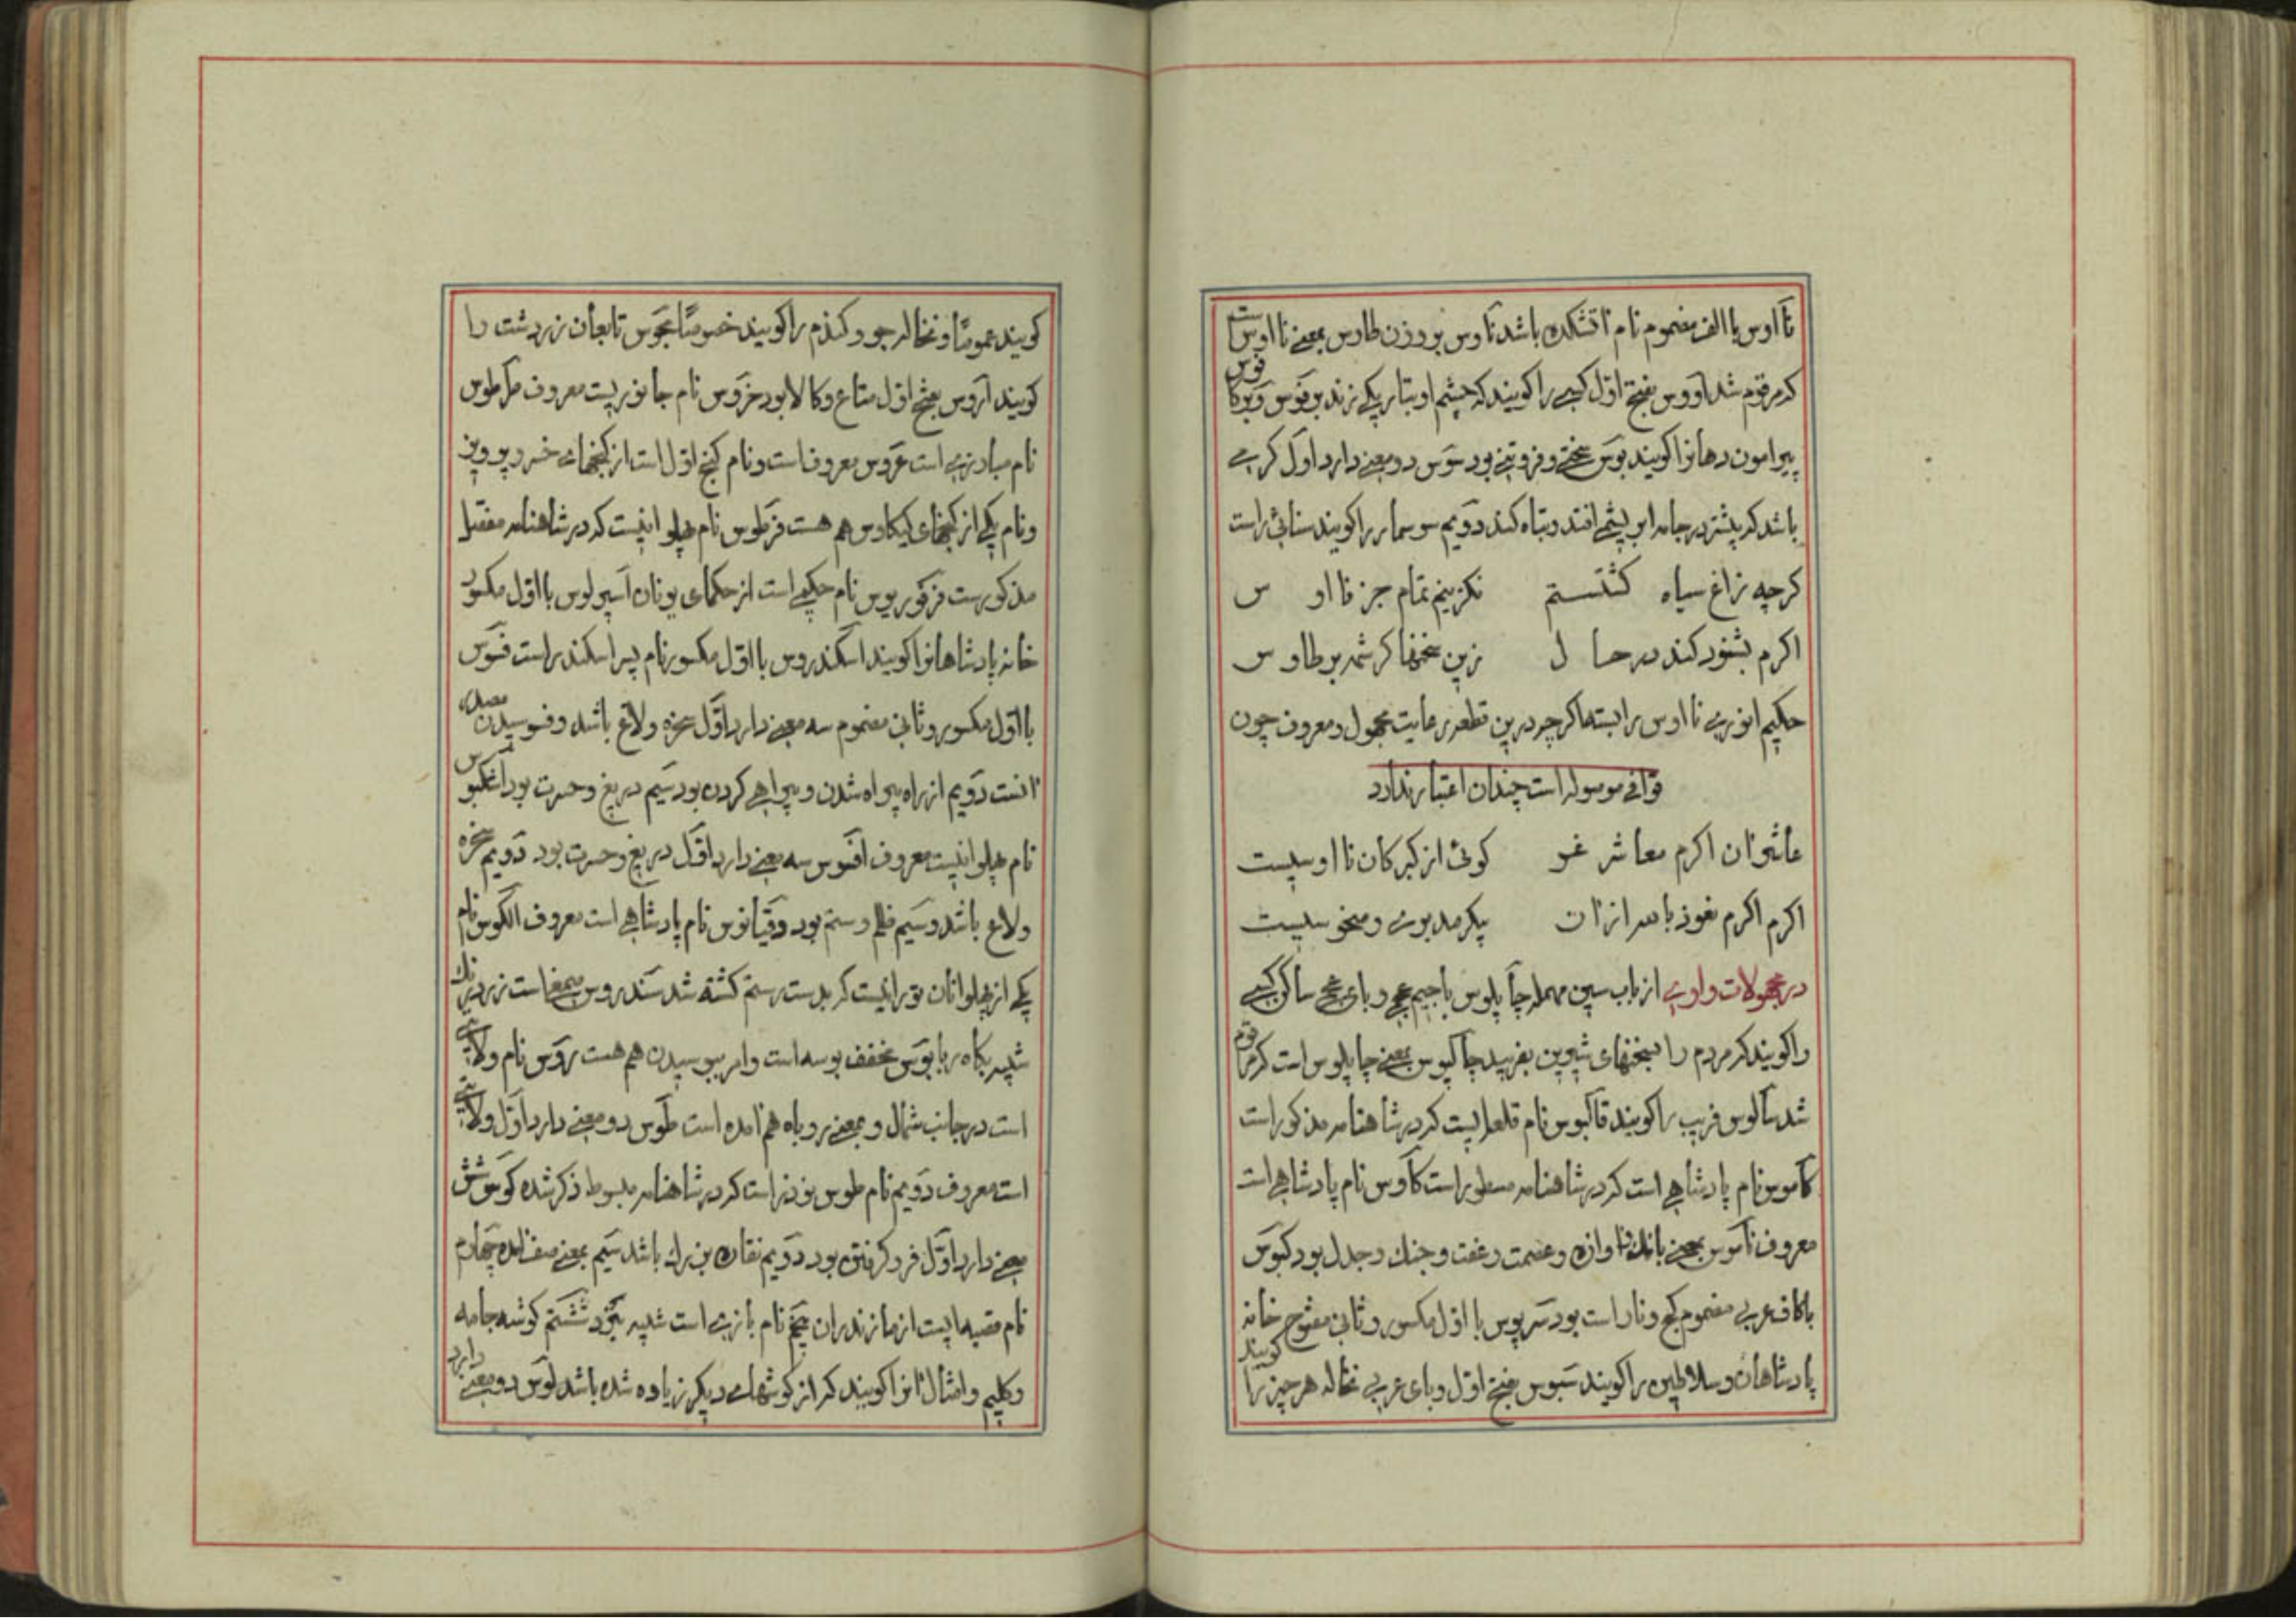 نااوس باالف مضموم نام آتشکده باشد ناوس بروزن طاوس بمعنی نااوس است
که مرقوم شد اووس بفتح اول کسی را گویند که چشم او بتاریکی زند بوفوس
پیرامون دهانرا گویند بوس سختی و فروتنی بود سوس دو معنی دارد اول کرمی
باشد که بیشتر در جامه ابریشمی افتد و تباه کند دویم سوسمار را گویند سنائی راست
کرچه زاغ سیاه نکزینم تمام جز نااو س
اکرم بشنود کند در حا ل زین سخنها کرشمه بر طاو س
حکیم انوری نااوس را بسته اکرچه درین قطعه رعایت مجهول و معروف چون
قوافی موصوله است چندان اعتبار ندارد
عاشوان اکرم معاشر غو کوئی از کبرکان نااوسیست
اکرم اکرم نعوذ بالله ازان پیکر مدبری و منحوسیست
در مجهولات واوی از باب سین مهمله چاپلوس باجیم عجمی و بای عجمی ساکن کسی
را گویند که مردم را بسخنهای شیرین بفریبد چاکپوس بمعنی چاپلوس است که مرقوم
شد سالوس فریب را گویند قاکبوس نام قلعه ایست که در شاهنامه مذکور است
کاموس نام پادشاهی است که در شاهنامه مسطور است کاوس نام پادشاهی است
معروف ناموس بمعنی بانک و آوازه و عصمت و عفت و جنک و جدل بود کبوس
باکاف عربی مضموم کج و ناراست بود سرپوس با اول مکسور و ثانی مفتوح خانه
پادشاهان و سلاطین را گویند سبوس بفتح اول و بای عربی نخاله هر چیز را گویند
کویند عموما و نخاله جو و کندم را کویند خصوصا مجوس تابعان زردشت را
کویند اروس بفتح اول متاع و کالا بود خروس نام جانوریست معروف طرطوس
نام مبارزی است عروس معروف است و نام کنج اول است از کنجهای خسرو پرویز
و نام یکی از کنجهای کیکاوس هم هست فرطوس نام پهلوانیست که در شاهنامه مفصل
مذکور است فرفوریوس نام حکیمی است از حکمای یونان اسپرلوس با اول مکسور
خانه پادشاهانرا کویند اسکندروس با اول مکسور نام پسر اسکندر است فسوس
با اول مکسور و ثانی مضموم سه معنی دارد اول سخره و لاغ باشد و فسوسیدن مصدر
آنست دویم از راه بیراه شدن و بیراهی کردن بود سیم دریغ و حسرت بود اشکبوس
نام پهلوانیست معروف افسوس سه معنی دارد اول دریغ و حسرت بود دویم سخره
و لاغ باشد و سیم ظلم و ستم بود دقیانوس نام پادشاهی است معروف الکوس نام
یکی از پهلوانان تورانیست که بدست رستم کشته شد سندروس صمغی است زرد رنک
شبیه بکاه ربا بوس مخفف بوسه است و امر ببوسیدن هم هست روس نام ولایتی
است در جانب شمال و بمعنی روباه هم آمده است طوس دو معنی دارد اول ولایتی
است معروف دویم نام طوس نوذر است که در شاهنامه مبسوط ذکر شده کوس شش
معنی دارد اول فرو کرفتن بود دویم نقاره بزرک باشد سیم بمعنی صف آمده چهارم
نام قصبه ایست از مازندران پنجم نام بازی است شبیه بنرد ششم کوشه جامه
و کلیم و امثال آنرا کویند که از کوشهای دیکر زیاده شده باشد لوس دو معنی دارد